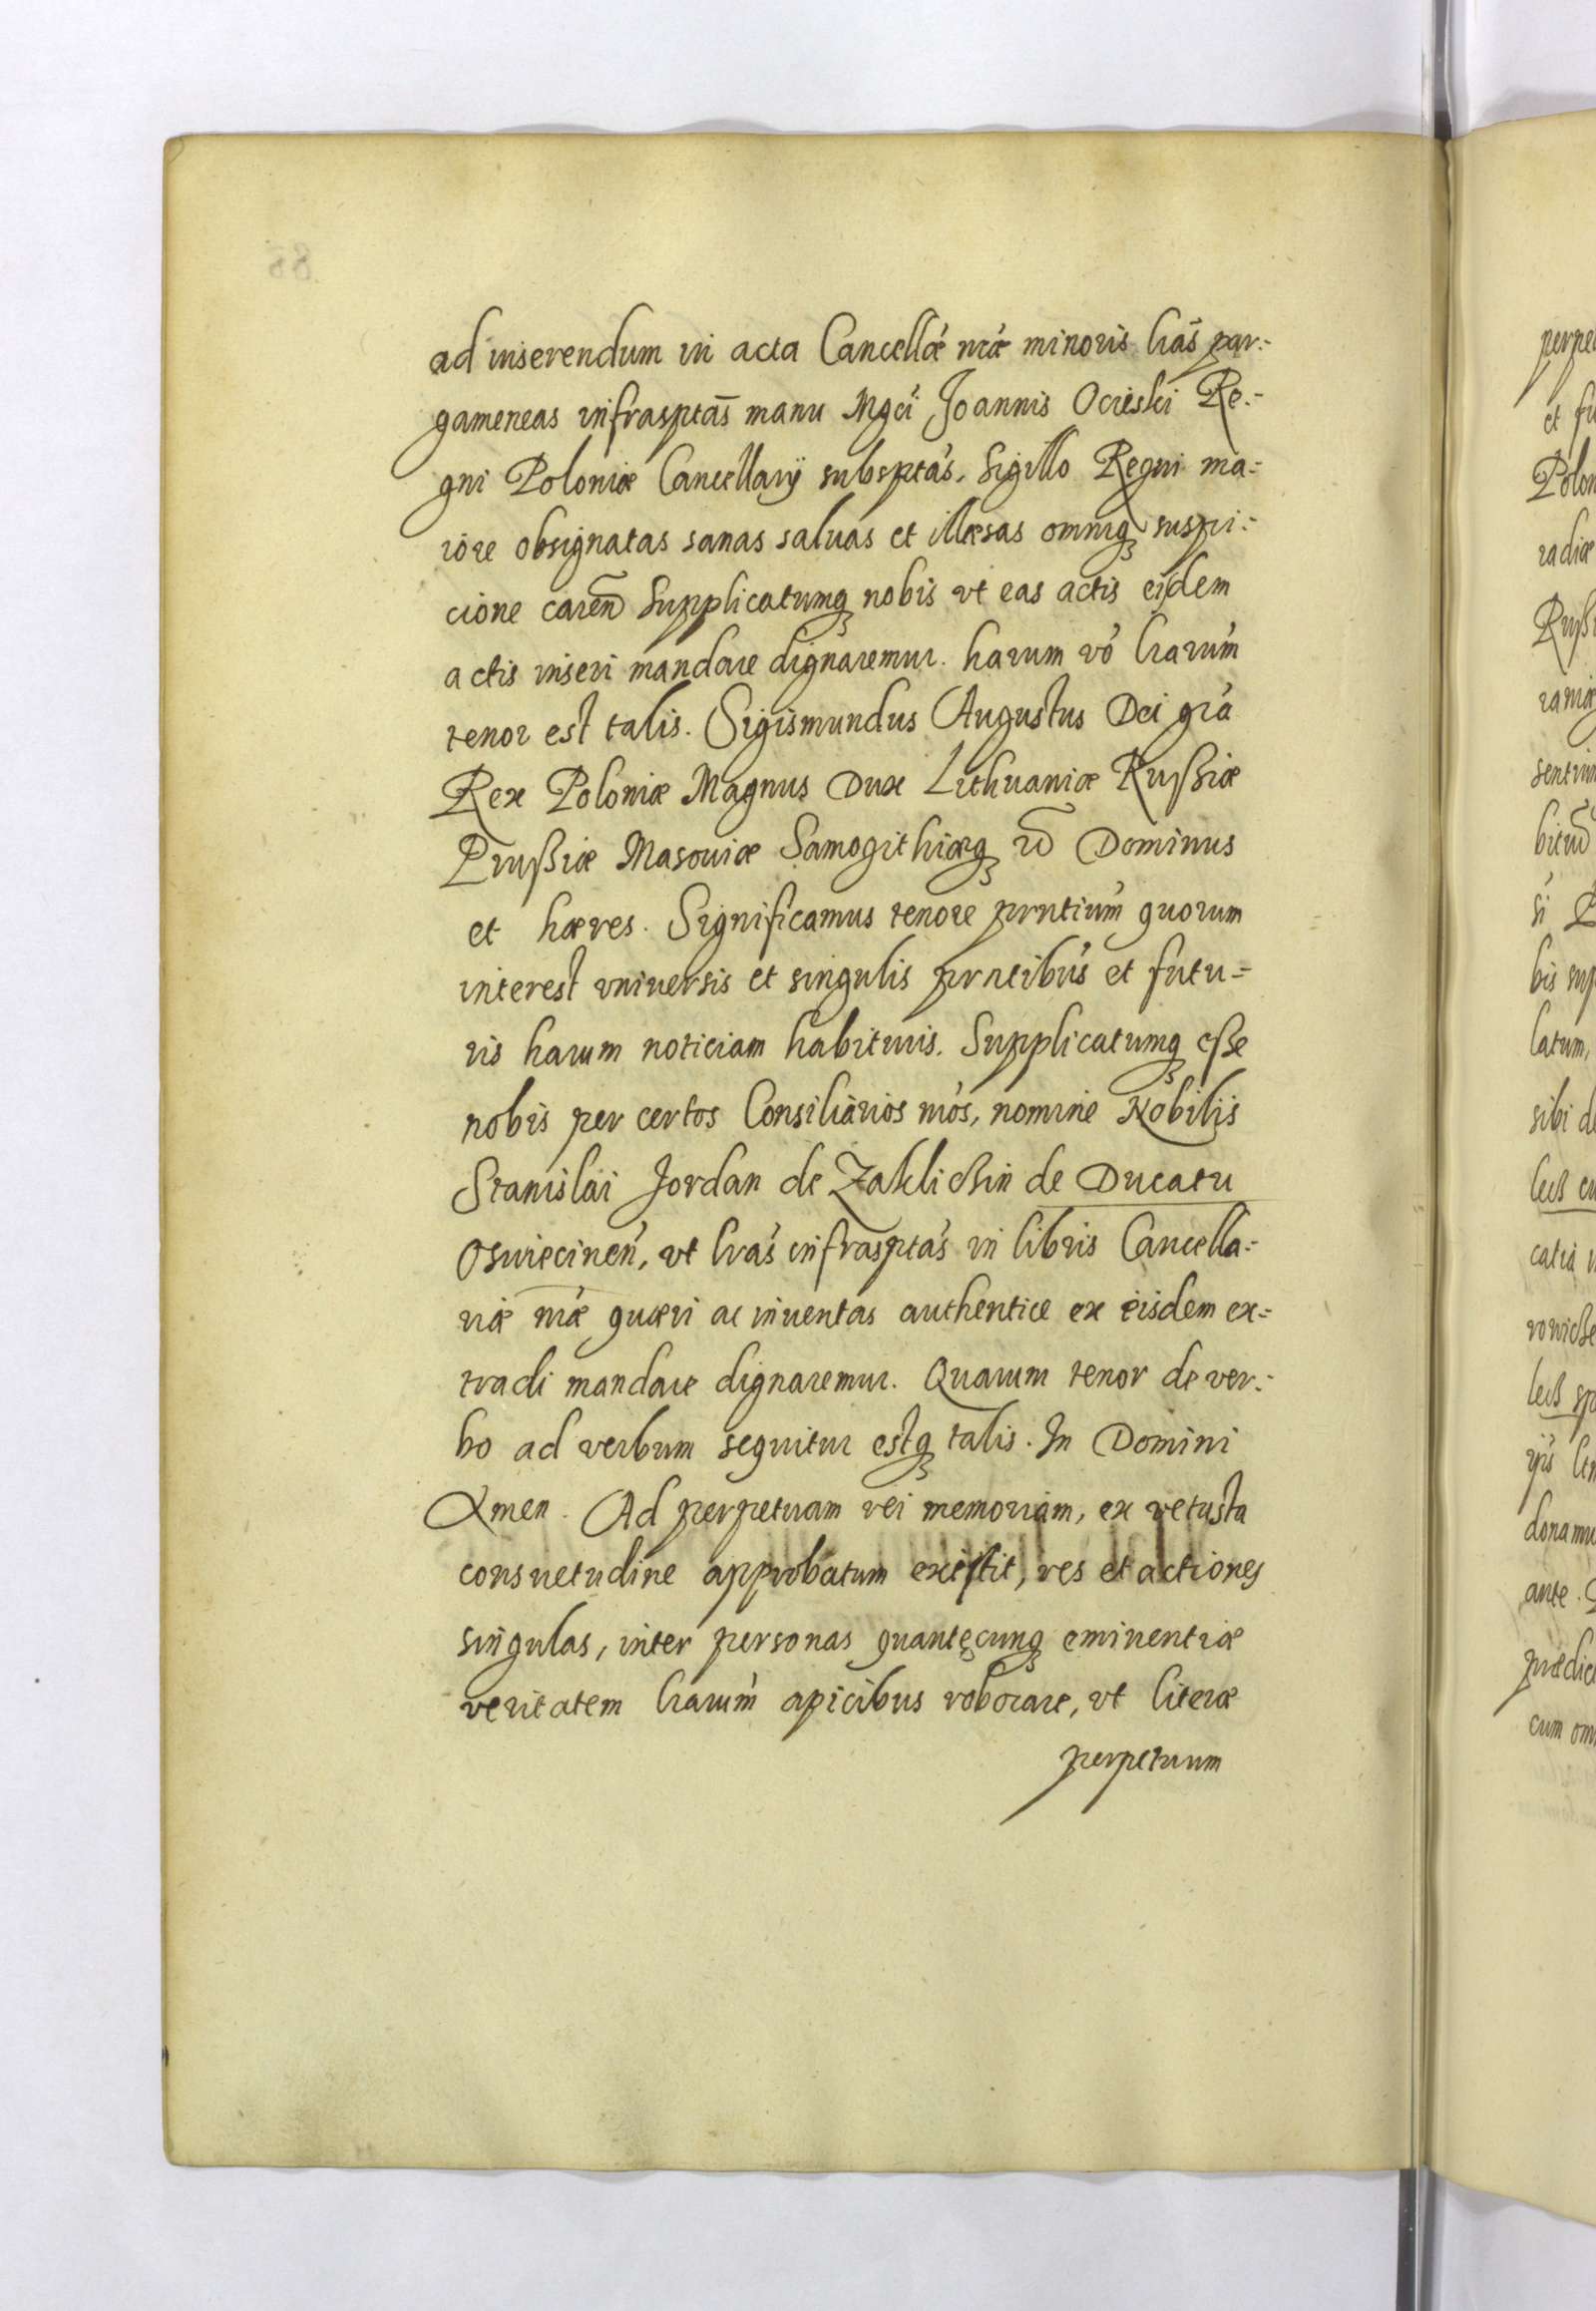 ad inserendum in acta Cancellæ nræ minoris lrās par:-
gameneas infrasptas manu Mgci Joannis Ocieski Re:-
gni Poloniæ Cancellarij subsptas, Sigillo Regni ma:-
iore obsignatas sanas saluas et illæsas omniq suspi:-
cione caren Supplicatumq nobis vt eas actis eisdem
actis inseri mandare dignaremur. harum vo lrarum
tenor est talis. Sigismundus Augustus Dei gra
Rex Poloniæ Magnus Dux Lithuaniæ Rußiæ
Prußiæ Masouiæ Samogithiæq Dominus
et hæres. Significamus tenore prntium quorum
interest vniuersis et singulis prntibus et futu:-
ris harum noticiam habituris. Supplicatumq eße
nobis per certos Consiliarios nros, nomine Nobilis
Stanislai Jordan de Zaklichin de Ducatu
Oswiecinen, vt lras infrasptas in libris Cancella:-
riæ nræ quæri ac inuentas authentice ex eisdem ex:-
tradi mandare dignaremur. Quarum tenor de ver:-
bo ad verbum sequitur estq talis. In Domini
Amen. Ad perpetuam rei memoriam, ex vetusta
consuetudine approbatum existit, res et actiones
singulas, inter personas quantęcunq eminentiæ
veritatem lrarum apicibus roborare, vt literæ
perpetuum
perpe
et fu
Polon
radiæ
Rußi
sentim
bis sup
latum,
sibi de
donamu
ante.
prædict
cum om